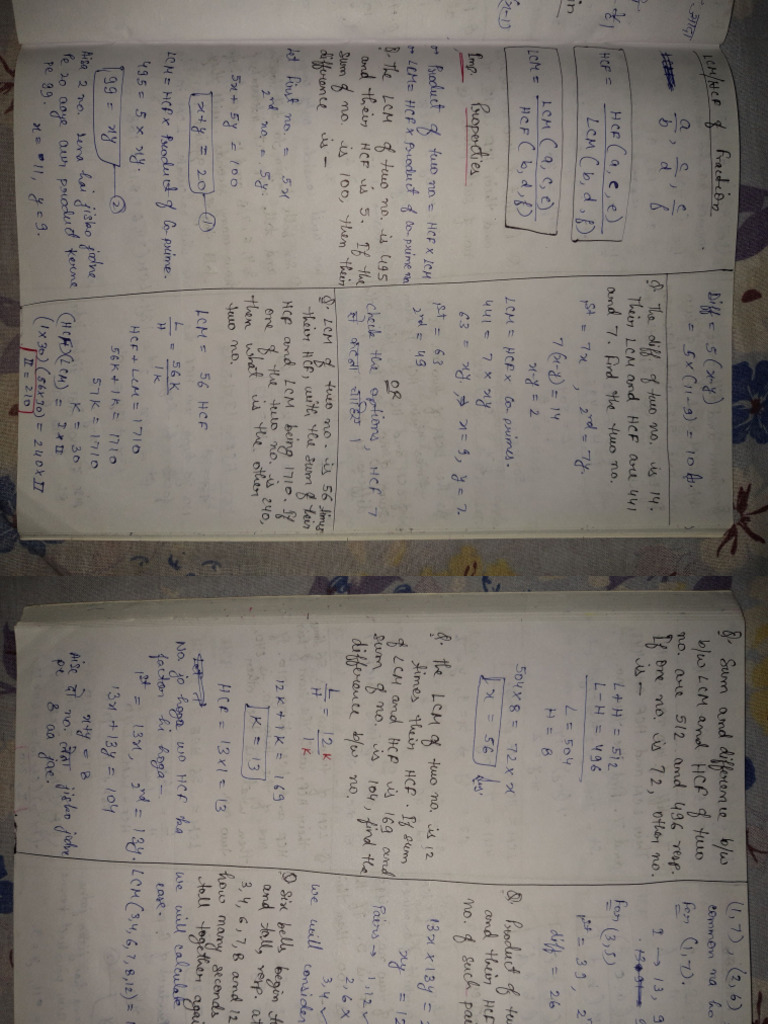 LCM/HCF of Fraction
a/b , c/d , e/f
HCF = HCF(a, c, e) / LCM(b, d, f)
LCM = LCM(a, c, e) / HCF(b, d, f)
Imp. Properties
→ Product of two no = HCF x LCM
→ LCM = HCF x Product of co-prime no
Q. The LCM of two no. is 495
and their HCF is 5. If the
sum of no. is 100, then their
difference is -
let first no. = 5x
2nd no. = 5y.
5x + 5y = 100
x+y = 20 ①
LCM = HCF x Product of Co-prime.
495 = 5 x xy.
99 = xy ②
Aise 2 no. lena hai jisko jodne
pe 20 aaye aur product karne
pe 99. x = 11, y = 9.
Diff = 5(x-y)
= 5 x (11-9) = 10
Q. The diff of two no. is 14.
Their LCM and HCF are 441
and 7. find the two no.
1st = 7x , 2nd = 7y.
7(x-y) = 14
x-y = 2
LCM = HCF x Co primes.
441 = 7 x xy
63 = xy → x = 9, y = 7
1st = 63
2nd = 49
OR
check the options, HCF 7
Q. LCM of two no. is 56 times
their HCF, with the sum of their
HCF and LCM being 1710. If
one of the two no. is 240,
then what is the other
two no.
LCM = 56 HCF
L/H = 56K/1K
HCF + LCM = 1710
56K + 1K = 1710
57K = 1710
K = 30
(HCF)(LCM) = I x II
(1x30)(56x30) = 240 x II
II = 210
Q. Sum and difference b/w
b/w LCM and HCF of two
no. are 512 and 496 resp.
If one no. is 72, other no.
is -
L + H = 512
L - H = 496
L = 504
H = 8
504 x 8 = 72 x x
x = 56 Ans.
Q. The LCM of two no. is 12
times their HCF. If sum
of LCM and HCF is 169 and
sum of no. is 104, find the
difference b/w no.
L/H = 12K/1K
12K + 1K = 169
K = 13
HCF = 13 x 1 = 13
No jo hoga wo HCF ka
factor hi hoga -
1st = 13x, 2nd = 13y.
13x + 13y = 104
x+y = 8
Aise do no. lena jisko jodne
pe 8 aa jae.
(1,7) , (3,5)
common no ho
for (1,7).
for (3,5)
1st = 39, 2
diff = 26
Q. Product of tw
and their HCF
no. of such pai
13x x 13y =
xy = 12
Pairs → 1,12
2,6 x
3,4
we will consider
Q. Six bells begin t
and toll, resp. at
3, 4, 6, 7, 8 and 12
how many seconds
toll together again
we will calculate
case.
LCM (3,4,6,7,8,12) =